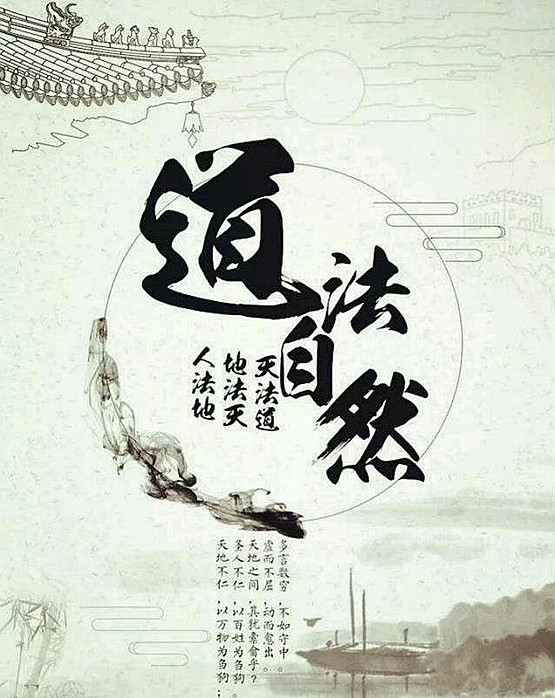 道法自然
人法地
地法灭
灭法道
天地不仁，以万物为刍狗；
圣人不仁，以百姓为刍狗。
天地之间，其犹橐龠乎？
虚而不屈，动而愈出。
多言数穷，不如守中。